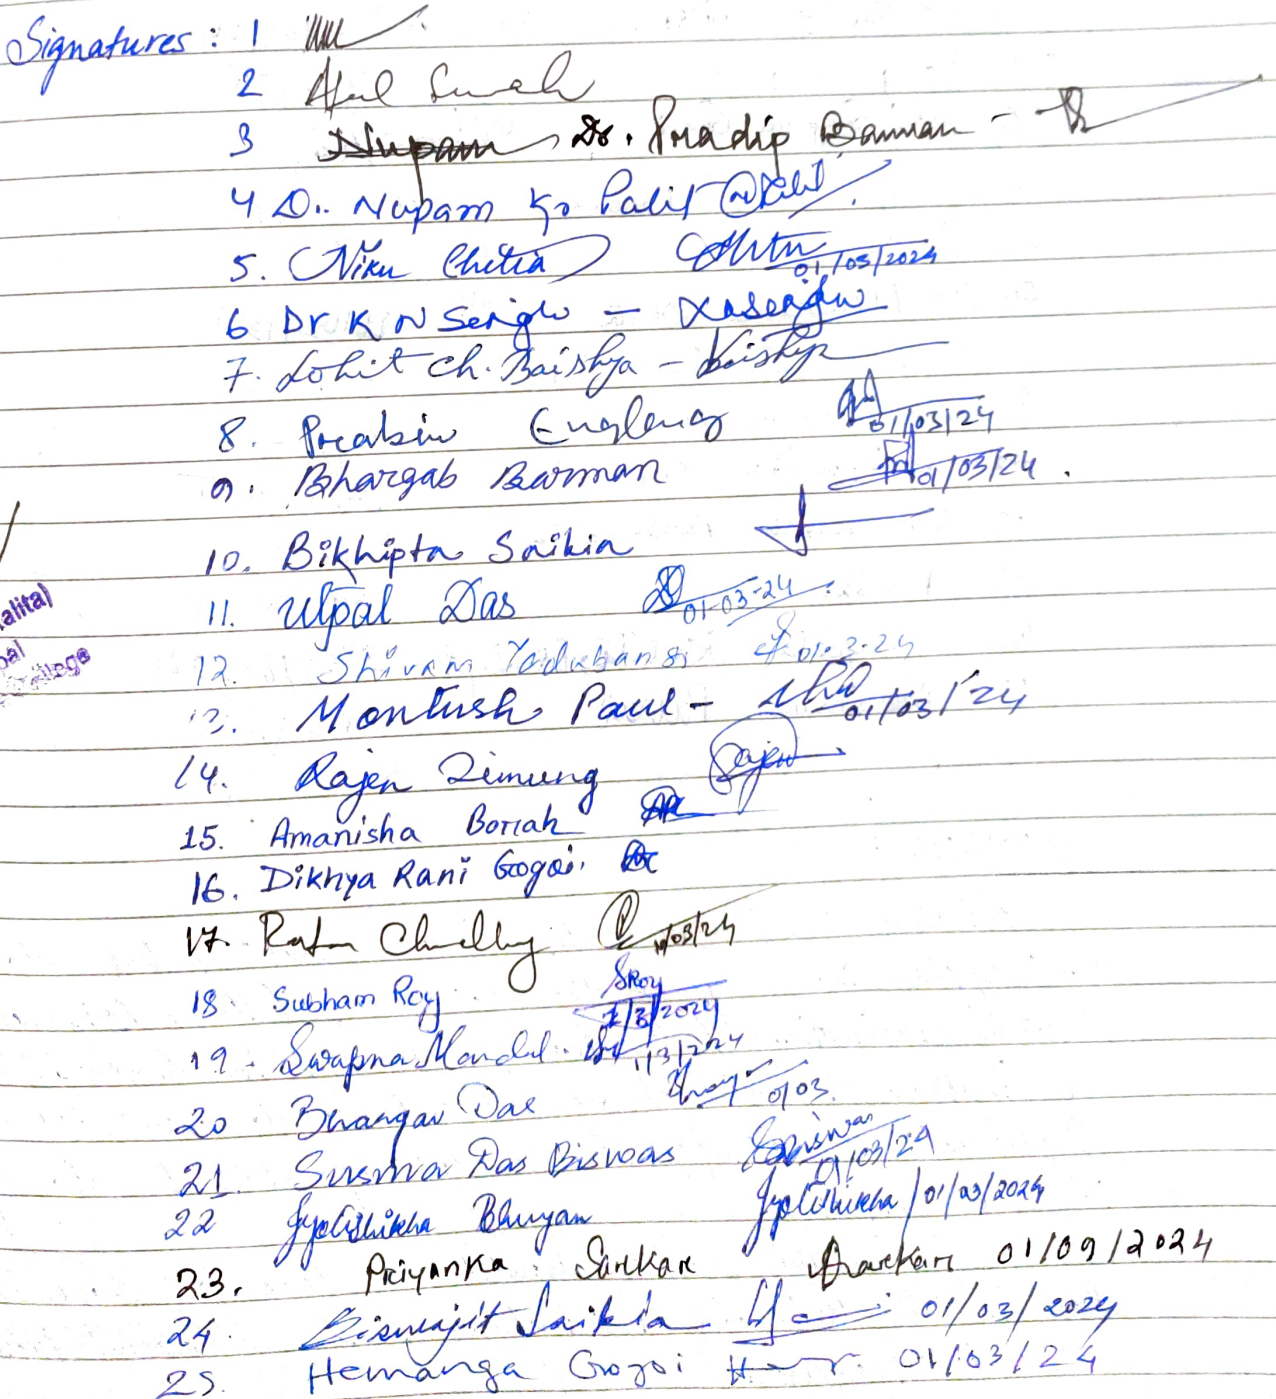 Signatures : 1
2
3 Nupam Dr. Pradip Barman -
4 Dr. Nupam Kr Palit
5. Niku Chetia 01/03/2024
6 Dr K N Senglo -
7. Lohit Ch. Baishya - Baishya
8. Prabin Engleng 01/03/24
9. Bhargab Barman 01/03/24.
10. Bikhipta Saikia
11. Utpal Das 01-03-24
12. Shivam Yadubansi 01.3.24
13. Montush Paul - 01/03/'24
14. Rajen Timung Rajen
15. Amanisha Borah
16. Dikhya Rani Gogoi.
17. 03/24
18. Subham Roy SRoy
1/3/2024
19. Swapna Mandal. 1/3/2024
20 Das 01/03.
21. Susma Das Biswas Biswas
01/03/24
22 Jyotishikha Bhuyan Jyotishikha / 01/03/2024
23. Priyanka Sarkar Sarkar 01/09/2024
24. Biswajit Saikia 01/03/2024
25. Hemanga Gogoi 01/03/24
alital)
pal
college